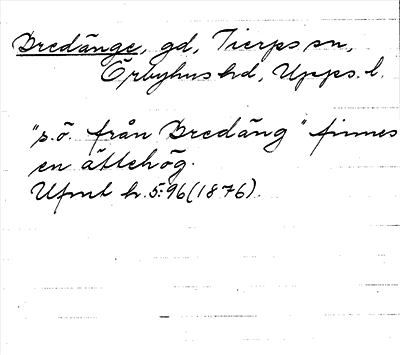 Bredänge, gd, Tierps sn,
Örbyhus hd, Upps. l.
"s.ö. från Bredäng" finnes
en ättehög.
Ufmt h. 5:96 (1876).